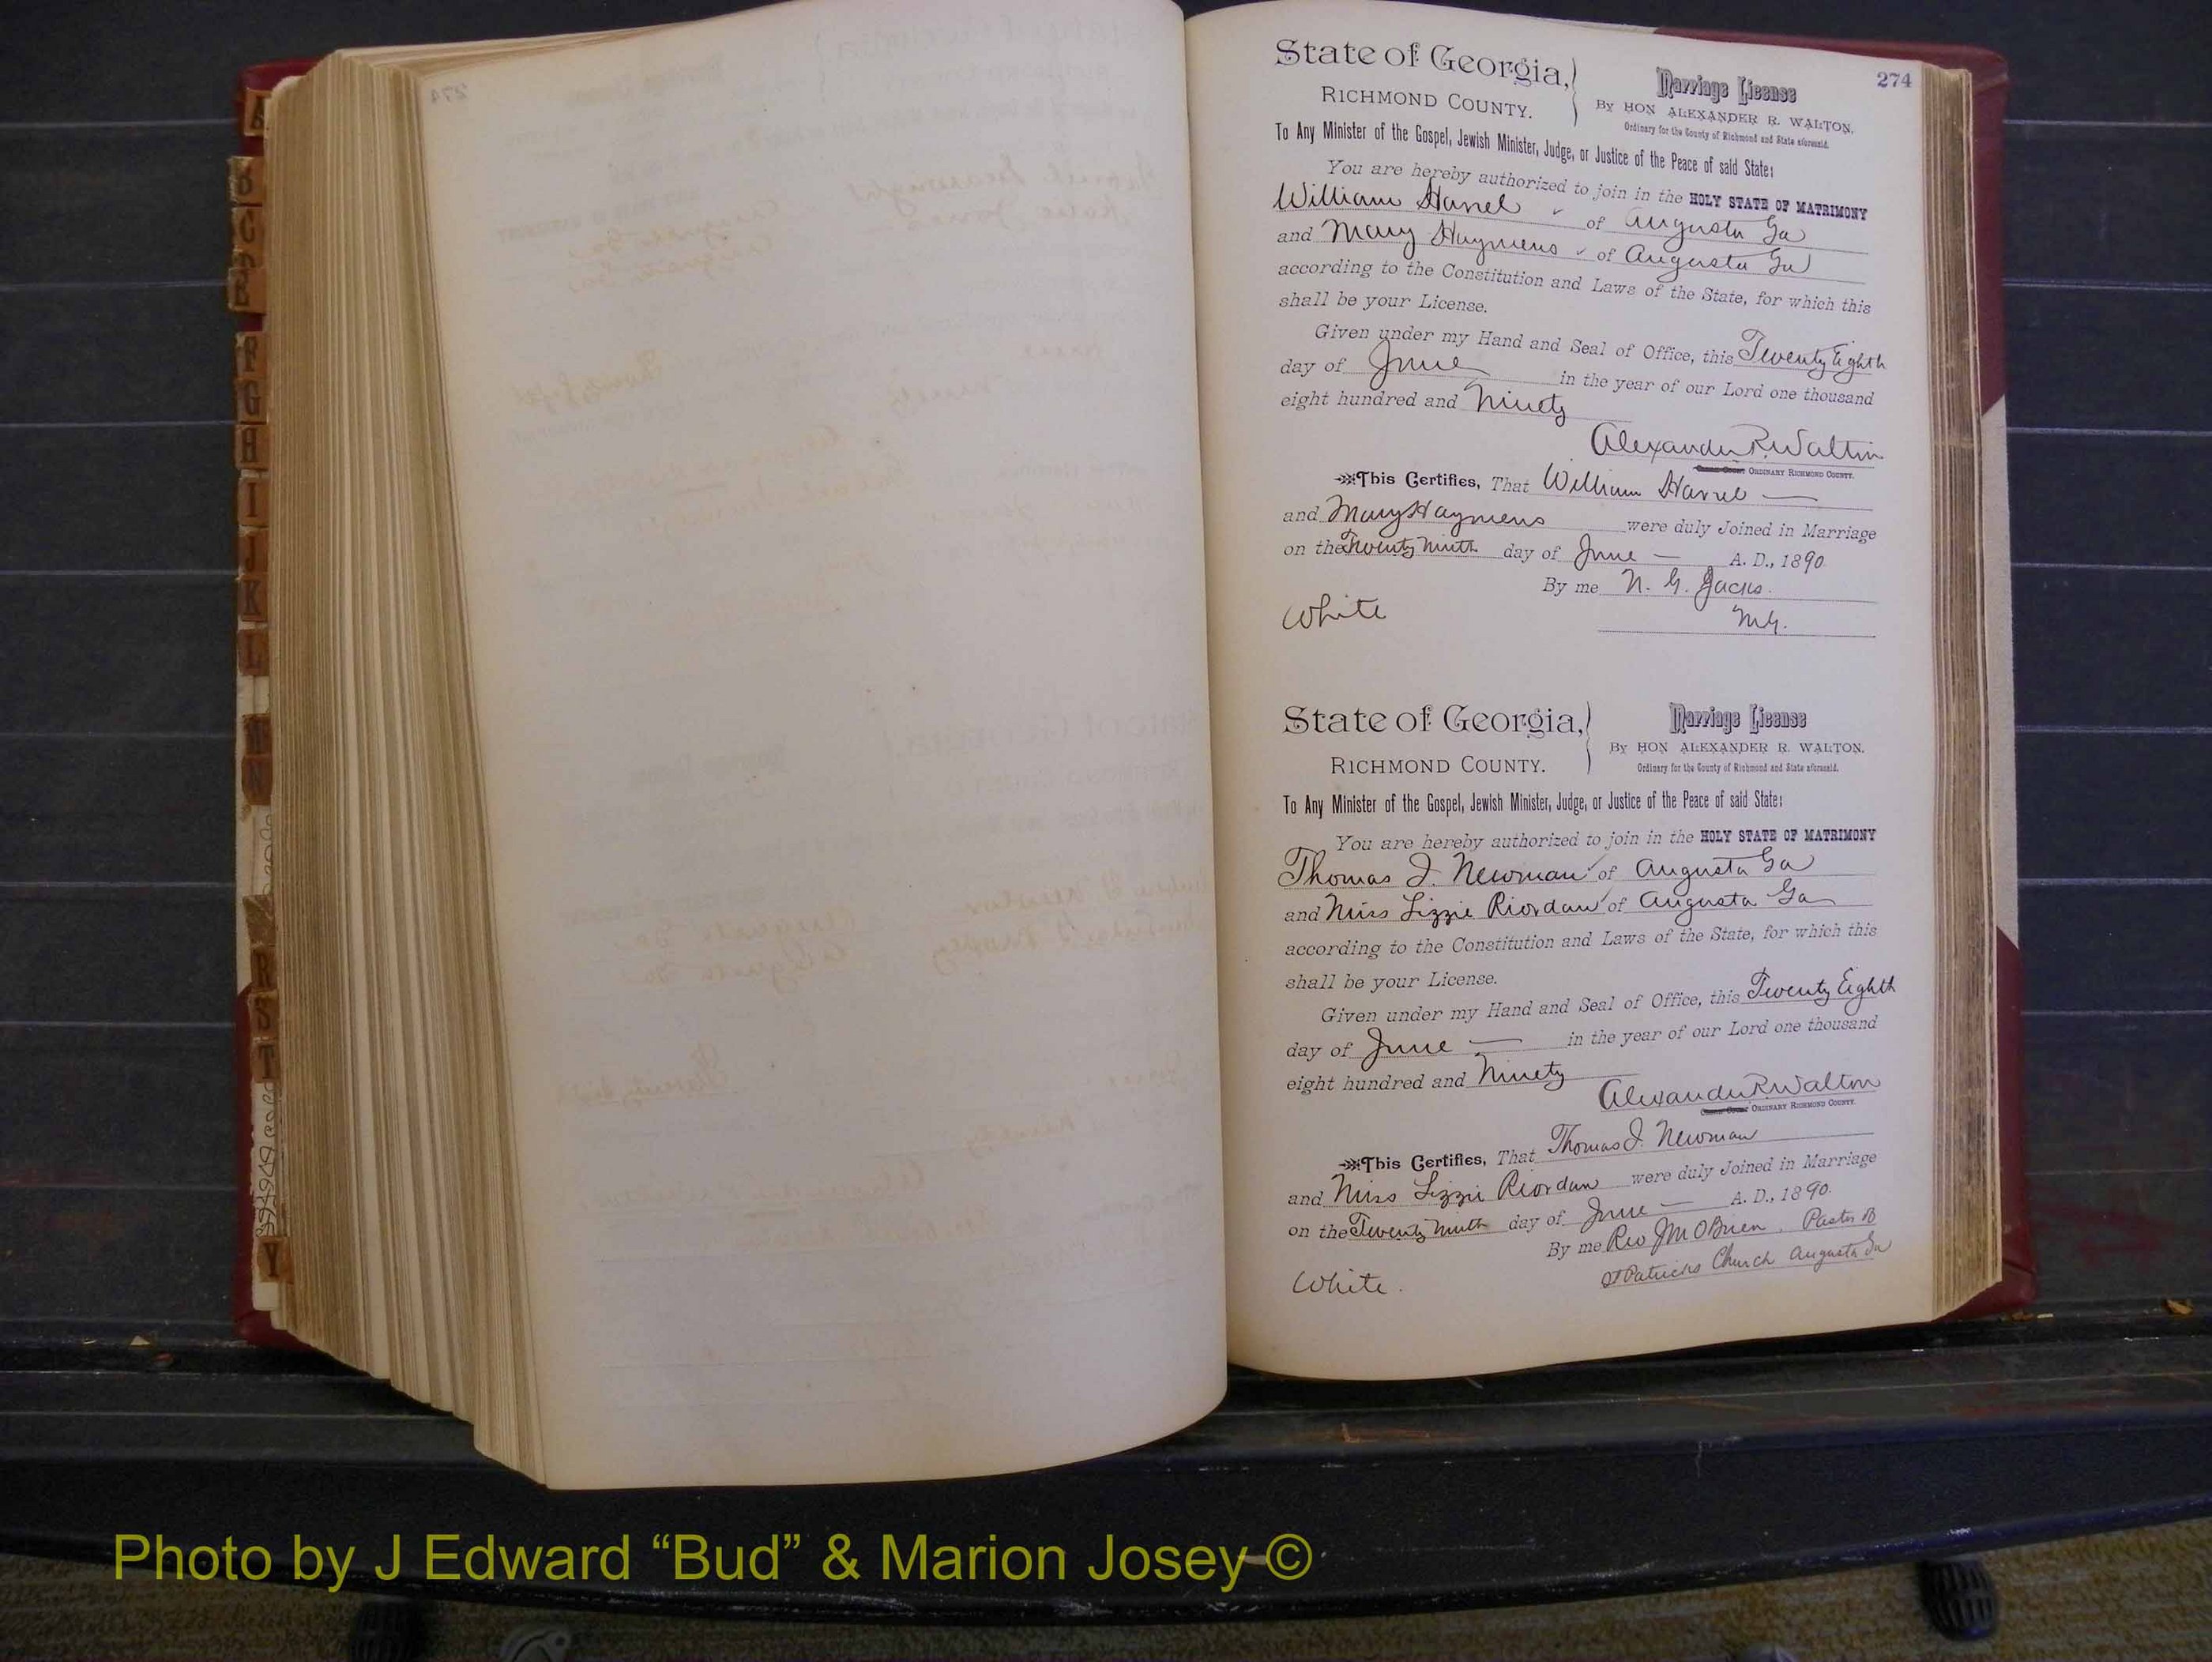 274
State of Georgia,
RICHMOND COUNTY.
Marriage License
By HON ALEXANDER R. WALTON,
Ordinary for the County of Richmond and State aforesaid.
To Any Minister of the Gospel, Jewish Minister, Judge, or Justice of the Peace of said State:
You are hereby authorized to join in the HOLY STATE OF MATRIMONY
William Harrel of Augusta Ga
and Mary Haymens of Augusta Ga
according to the Constitution and Laws of the State, for which this
shall be your License.
Given under my Hand and Seal of Office, this Twenty Eighth
day of June in the year of our Lord one thousand
eight hundred and Ninety
Alexander R. Walton
ORDINARY RICHMOND COUNTY.
This Certifies, That William Harrel
and Mary Haymens were duly Joined in Marriage
on the Twenty Ninth day of June A. D., 1890.
By me N. G. Jacks.
White
M.G.
State of Georgia,
RICHMOND COUNTY.
Marriage License
By HON ALEXANDER R. WALTON.
Ordinary for the County of Richmond and State aforesaid.
To Any Minister of the Gospel, Jewish Minister, Judge, or Justice of the Peace of said State:
You are hereby authorized to join in the HOLY STATE OF MATRIMONY
Thomas J. Newman of Augusta Ga
and Miss Lizzie Riordan of Augusta Ga
according to the Constitution and Laws of the State, for which this
shall be your License.
Given under my Hand and Seal of Office, this Twenty Eighth
day of June in the year of our Lord one thousand
eight hundred and Ninety
Alexander R. Walton
ORDINARY RICHMOND COUNTY.
This Certifies, That Thomas J. Newman
and Miss Lizzie Riordan were duly Joined in Marriage
on the Twenty Ninth day of June A. D., 1890.
By me Rev J M OBrien, Pastor
St Patricks Church Augusta Ga
White.
A
B
C
F
G
H
I
J
K
L
M
N
R
S
T
Y
Photo by J Edward “Bud” & Marion Josey ©